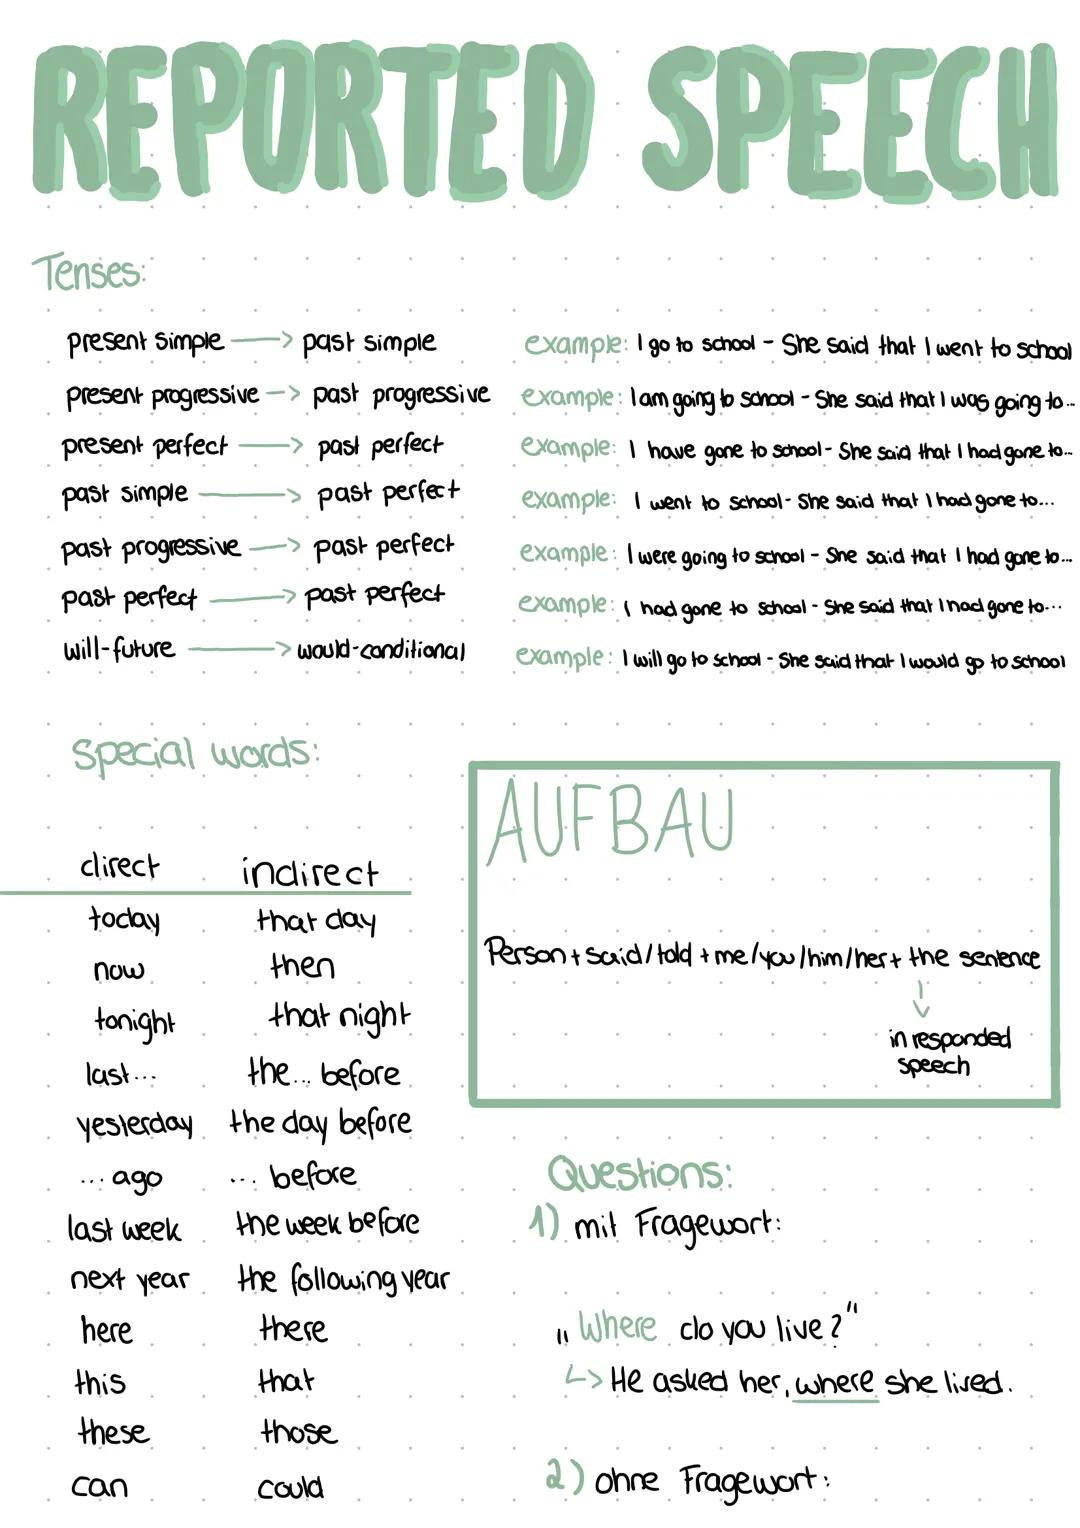 REPORTED SPEECH
Tenses:
present simple → past simple example: I go to school - She said that I went to school
present progressive → past progressive example: I am going to school - She said that I was going to...
present perfect → past perfect example: I have gone to school - She said that I had gone to...
past simple → past perfect example: I went to school - She said that I had gone to...
past progressive → past perfect example: I were going to school - She said that I had gone to...
past perfect → past perfect example: I had gone to school - She said that I had gone to...
will-future → would-conditional example: I will go to school - She said that I would go to school
Special words:
direct indirect
today that day
now then
tonight that night
last... the... before
yesterday the day before
... ago ... before
last week the week before
next year the following year
here there
this that
these those
can could
AUFBAU
Person + said/told + me/you/him/her + the sentence
↓
in responded
speech
Questions:
1) mit Fragewort:
„Where do you live?"
↳ He asked her, where she lived.
2) ohne Fragewort: